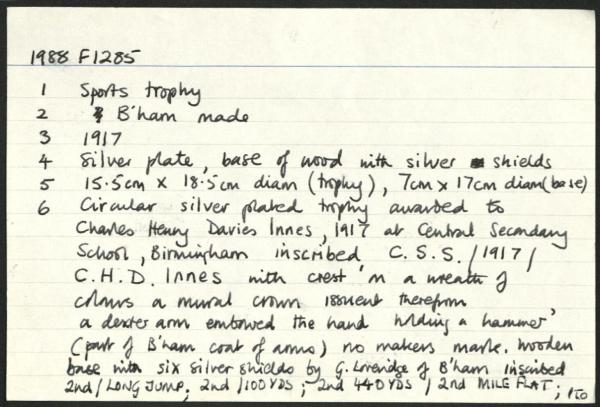 1988 F1285
1 Sports trophy
2 B'ham made
3 1917
4 Silver plate, base of wood with silver shields
5 15.5cm x 18.5cm diam (trophy), 7cm x 17cm diam (base)
6 Circular silver plated trophy awarded to
Charles Henry Davies Innes, 1917 at Central Secondary
School, Birmingham inscribed C.S.S./1917/
C.H.D. Innes with crest 'on a wreath of
colours a mural crown issuent therefrom
a dexter arm embowed the hand holding a hammer'
(part of B'ham coat of arms) no makers mark. Wooden
base with six silver shields by G. Loveridge of B'ham inscribed
2nd/LONG JUMP; 2nd/100YDS; 2nd 440YDS / 2nd MILE FLAT; PTO